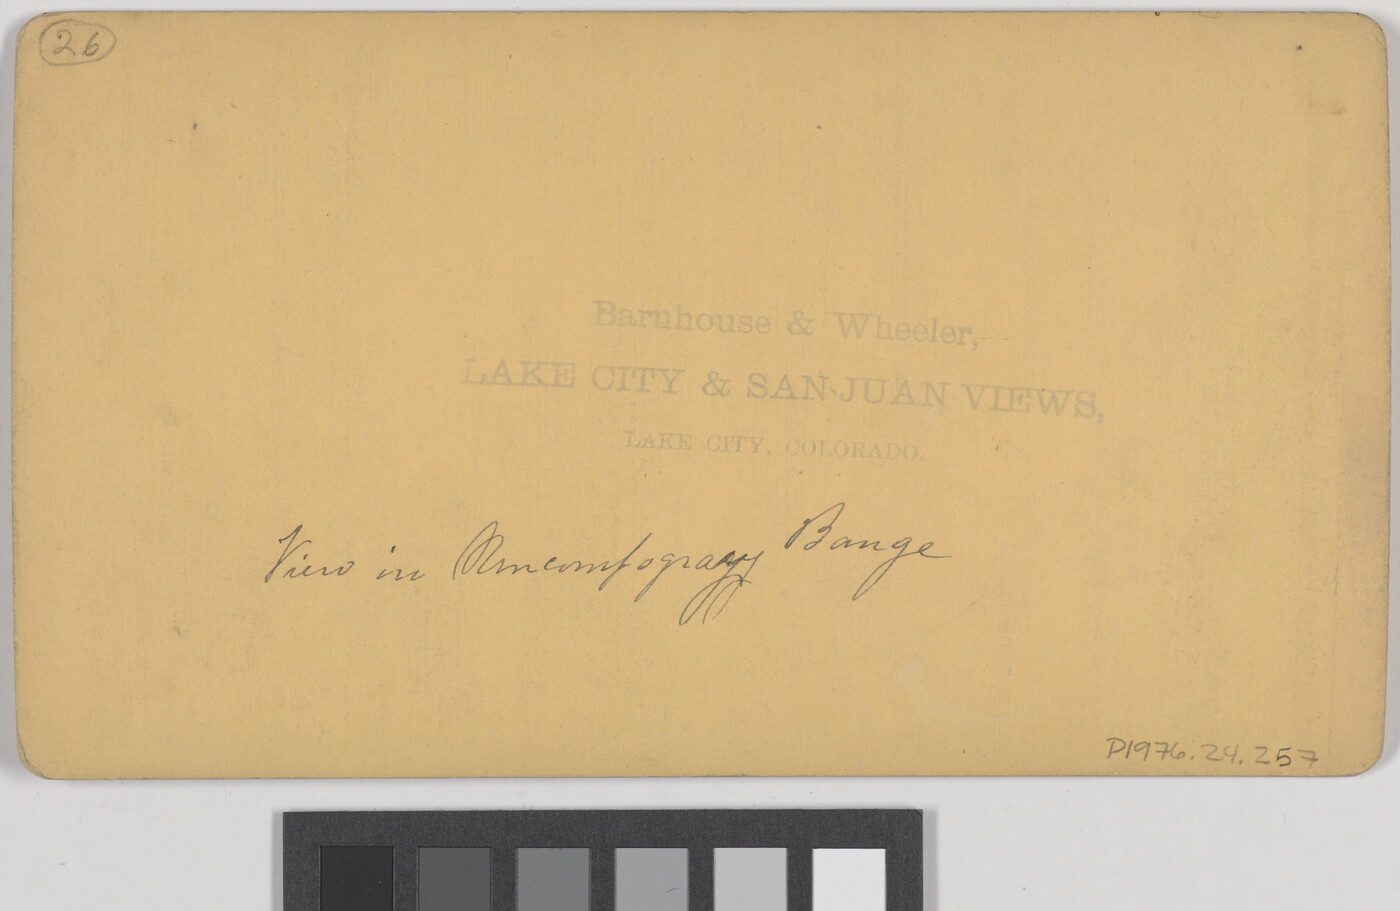 26
Barnhouse & Wheeler,
LAKE CITY & SAN JUAN VIEWS,
LAKE CITY, COLORADO.
View in Range
P1976.24.257